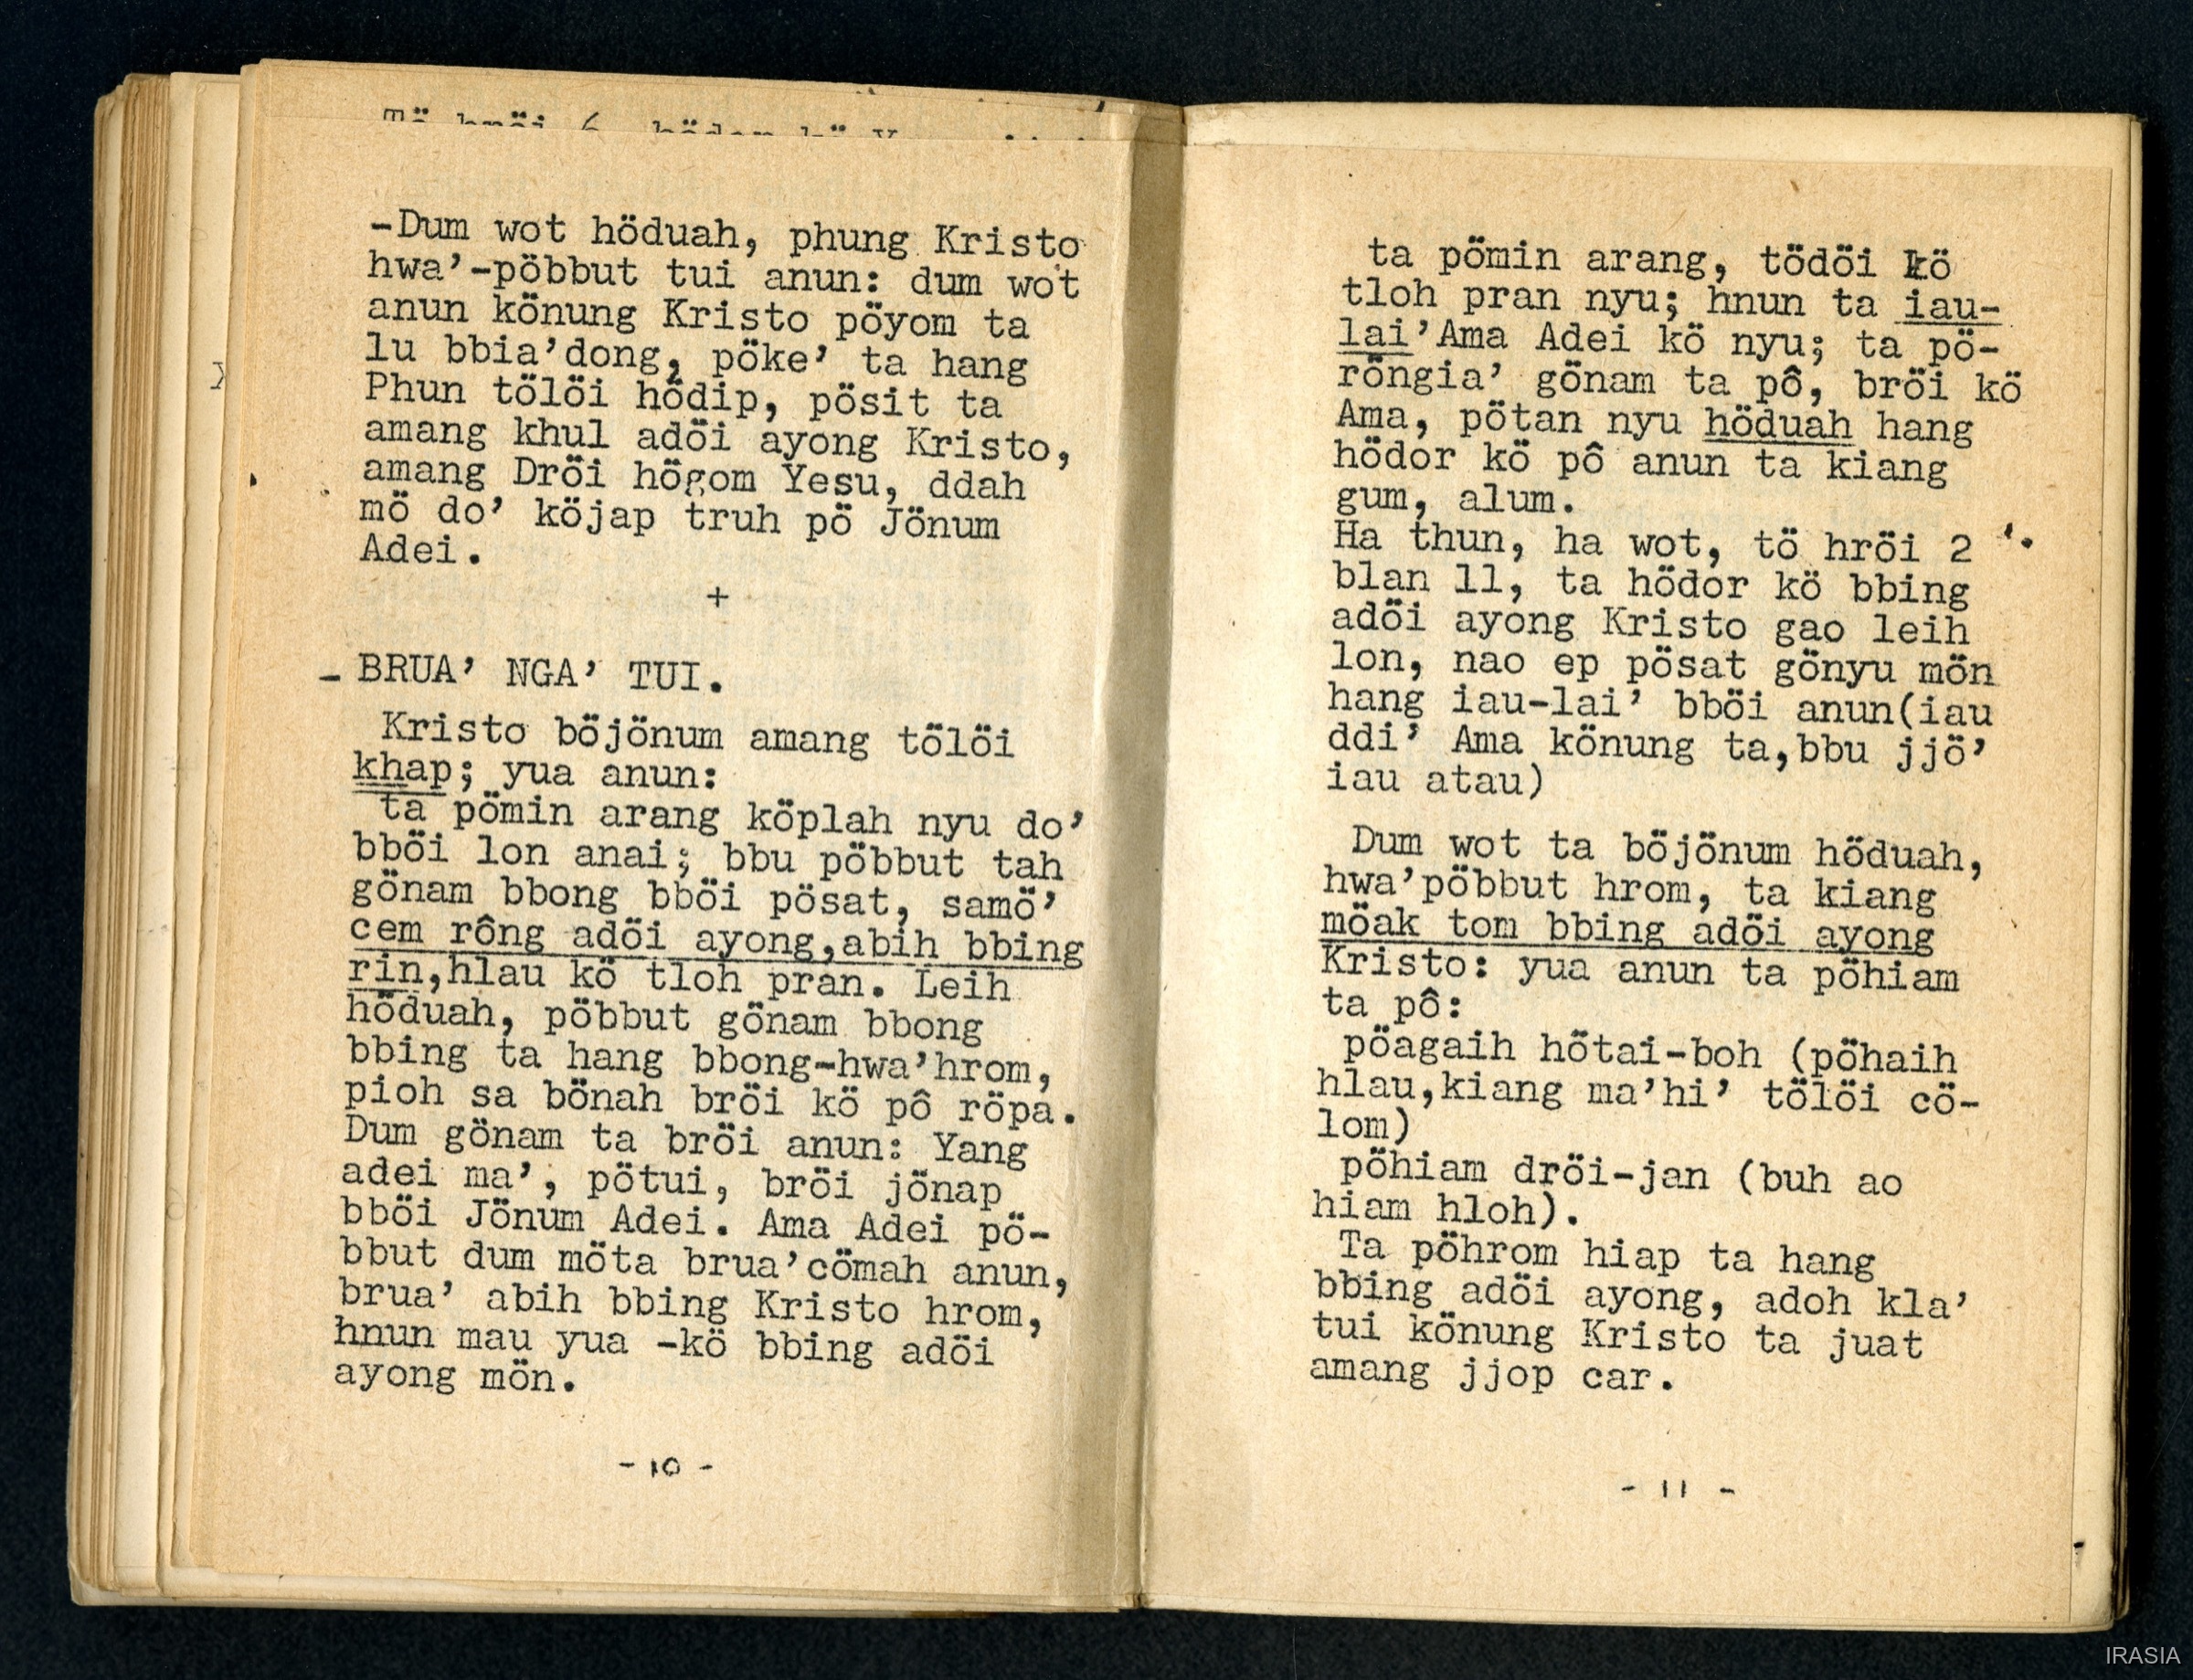 -Dum wot höduah, phung Kristo
hwa’-pöbbut tui anun: dum wot
anun könung Kristo pöyom ta
lu bbia’dong, pöke’ ta hang
Phun tölöi hödip, pösit ta
amang khul adöi ayong Kristo,
amang Dröi högom Yesu, ddah
mö do’ köjap truh pö Jönum
Adei.
+
_BRUA’ NGA’ TUI.
Kristo böjönum amang tölöi
khap; yua anun:
ta pömin arang köplah nyu do’
bböi lon anai; bbu pöbbut tah
gönam bbong bböi pösat, samö’
cem rông adöi ayong,abih bbing
rin,hlau kö tloh pran. Leih
höduah, pöbbut gönam bbong
bbing ta hang bbong-hwa’hrom,
pioh sa bönah bröi kö pô röpa.
Dum gönam ta bröi anun: Yang
adei ma’, pötui, bröi jönap
bböi Jönum Adei. Ama Adei pö-
bbut dum möta brua’cömah anun,
brua’ abih bbing Kristo hrom,
hnun mau yua -kö bbing adöi
ayong mön.
- 10 -
ta pömin arang, tödöi kö
tloh pran nyu; hnun ta iau-
lai’Ama Adei kö nyu; ta pö-
röngia’ gönam ta pô, bröi kö
Ama, pötan nyu höduah hang
hödor kö pô anun ta kiang
gum, alum.
Ha thun, ha wot, tö hröi 2
blan 11, ta hödor kö bbing
adöi ayong Kristo gao leih
lon, nao ep pösat gönyu mön
hang iau-lai’ bböi anun(iau
ddi’ Ama könung ta,bbu jjö’
iau atau)
Dum wot ta böjönum höduah,
hwa’pöbbut hrom, ta kiang
möak tom bbing adöi ayong
Kristo: yua anun ta pöhiam
ta pô:
pöagaih hötai-boh (pöhaih
hlau,kiang ma’hi’ tölöi cö-
lom)
pöhiam dröi-jan (buh ao
hiam hloh).
Ta pöhrom hiap ta hang
bbing adöi ayong, adoh kla’
tui könung Kristo ta juat
amang jjop car.
- 11 -
IRASIA